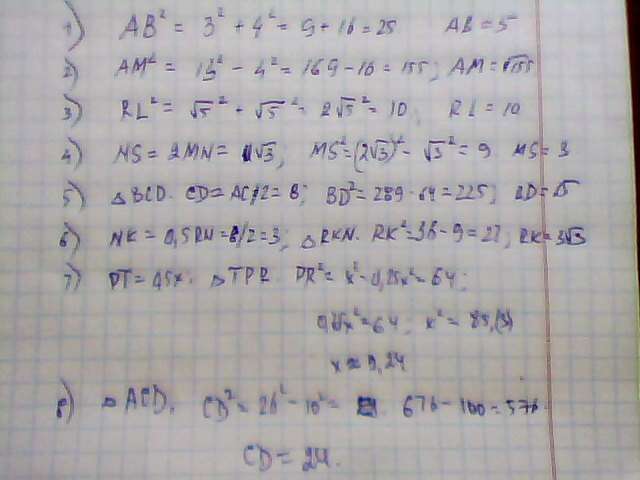 1) AB² = 3² + 4² = 9 + 16 = 25 AB = 5
2) AM² = 13² - 4² = 169 - 16 = 155; AM = √155
3) RL² = √5² + √5² = 2√5² = 10; RL = 10
4) NS = 2MN = √3; MS² = (2√3)² - √3² = 9 MS = 3
5) △BCD. CD = AC/2 = 8; BD² = 289 - 64 = 225; BD = 15
6) NK = 0,5RN = 6/2 = 3; △RKN. RK² = 36 - 9 = 27; RK = 3√3
7) PT = 0,5x. △TPR PR² = x² - 0,25x² = 64;
0,75x² = 64; x² = 85,(3)
x ≈ 9,24
8) △ACD. CD² = 26² - 10² = 676 - 100 = 576
CD = 24.